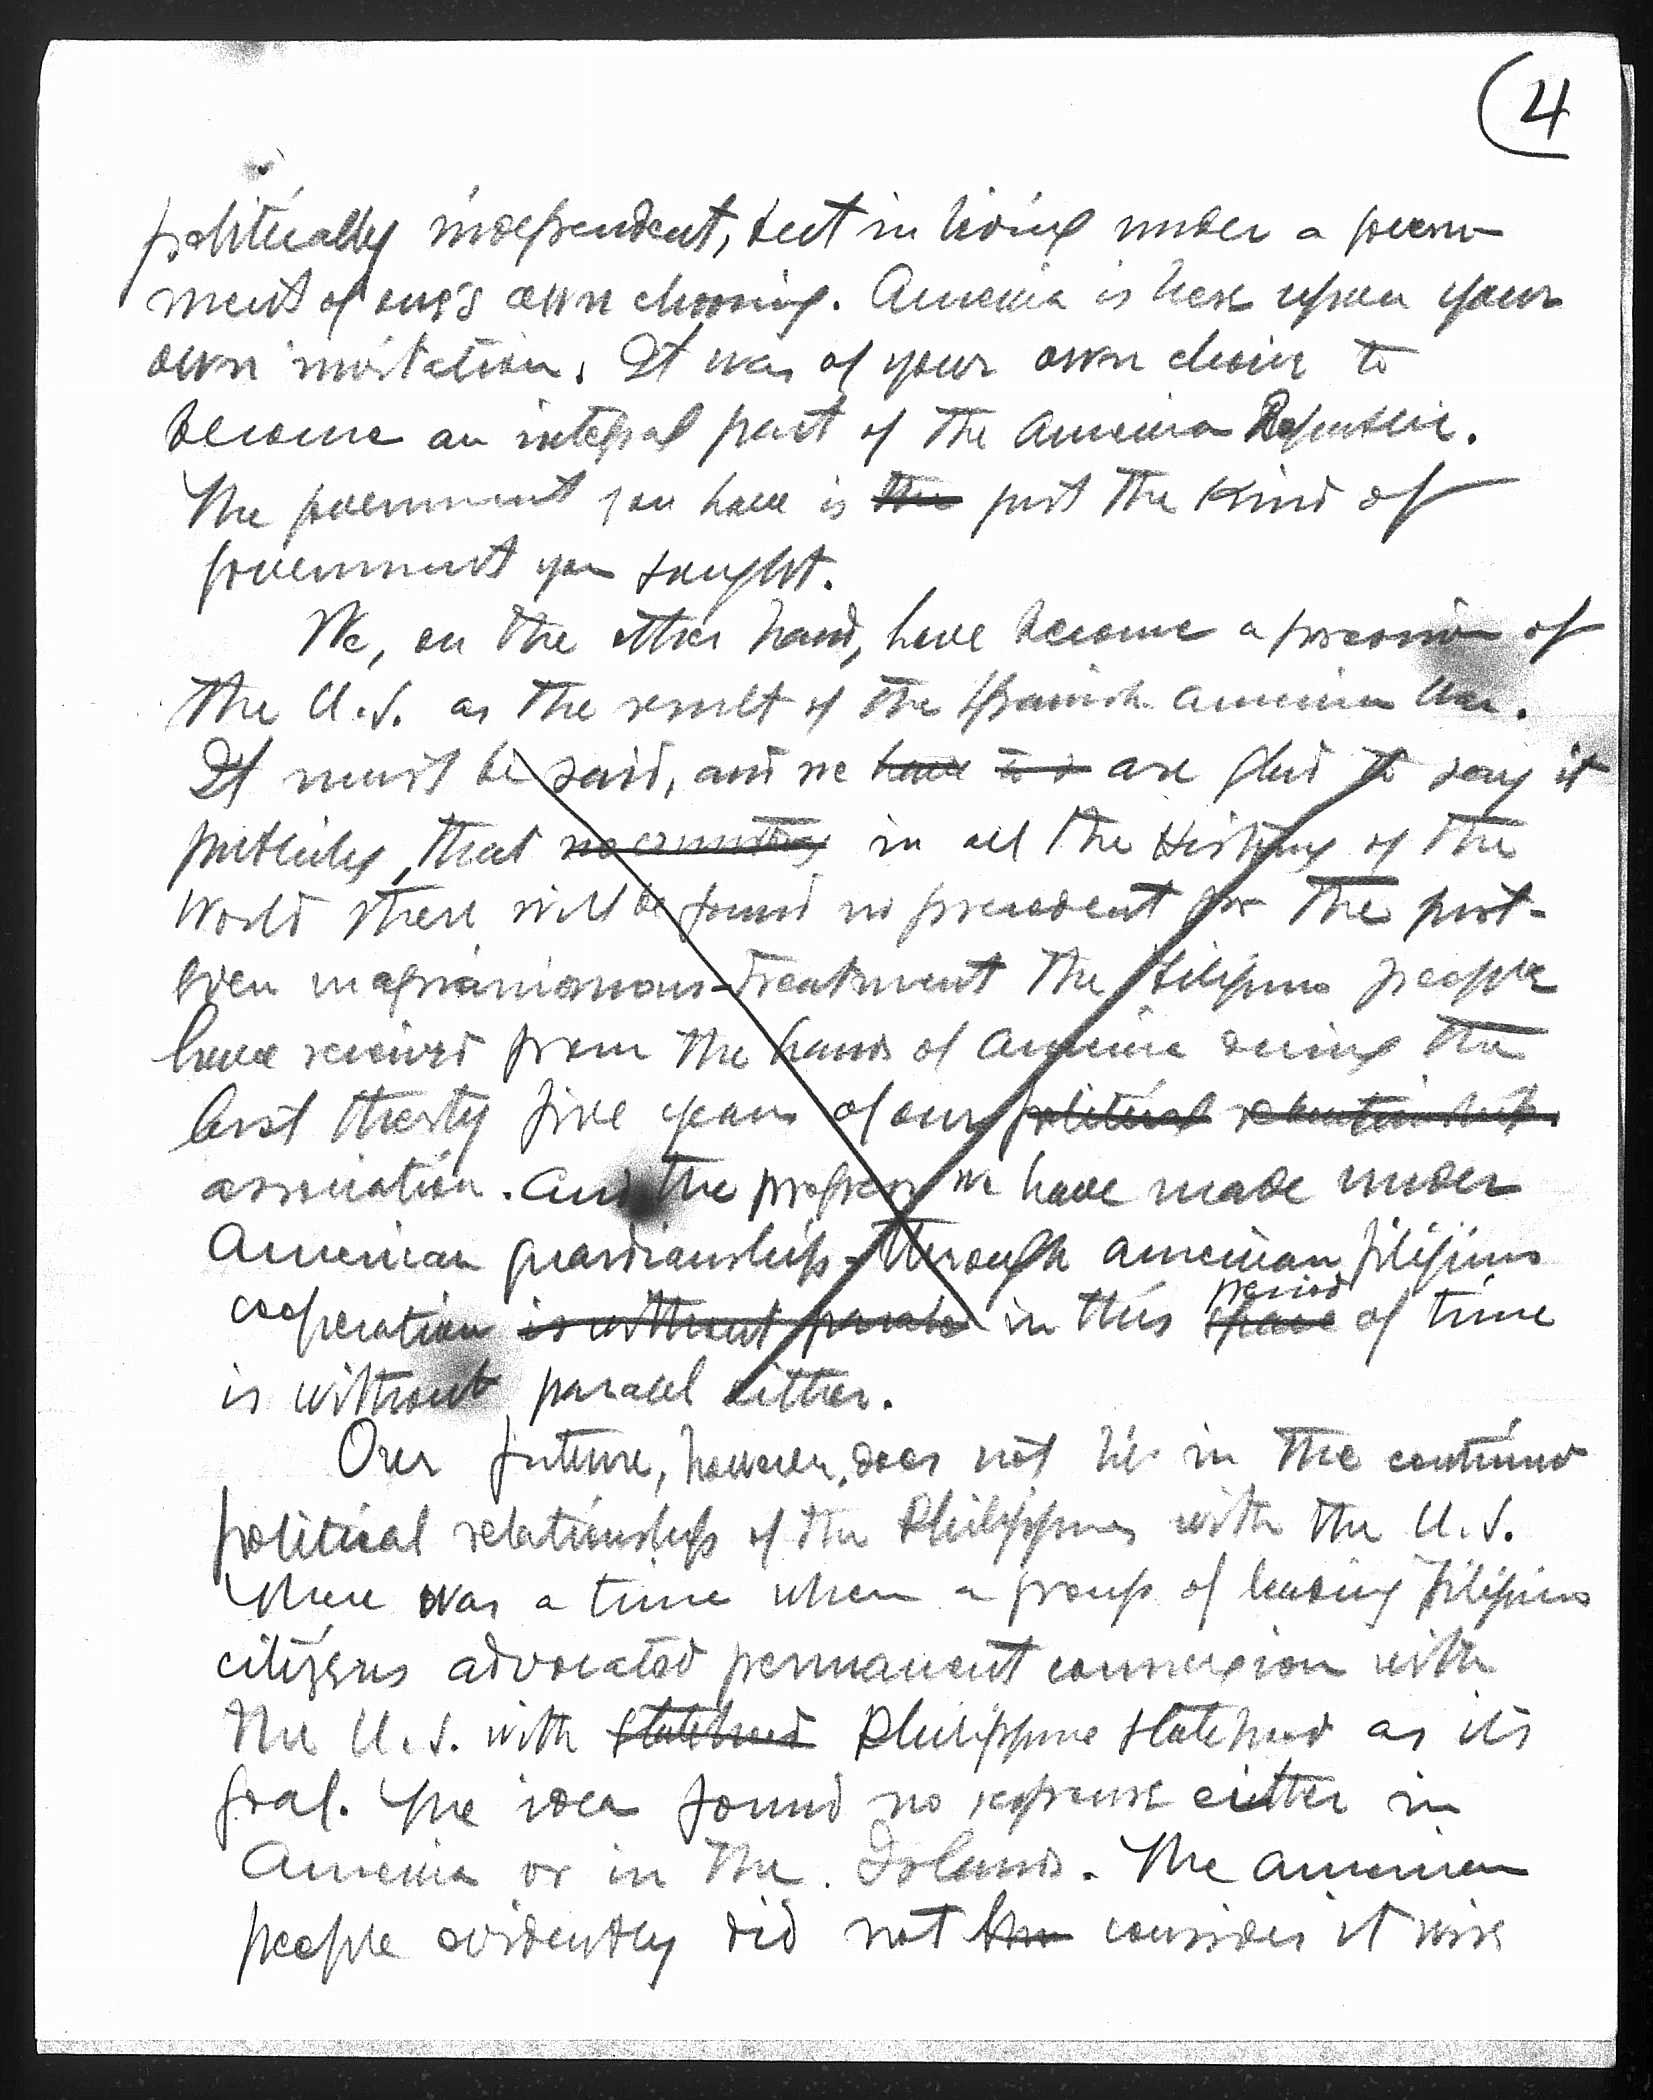 (4
politically independent, but in living under a govern-
ment of one's own choosing. America is here upon your
own invitation. It was of your own desire to
become an integral part of the American Republic.
The government you have is the just the kind of
government you sought.
We, on the other hand, have become a possession of
the U.S. as the result of the Spanish American War.
It must be said, and we have are glad to say it
publicly, that no country in all the History of the
World there will be found no precedent for the just-
even magnanimous-treatment the Filipino people
have received from the hands of America during the
last thirty five years of our political relationship
association. And the progress we have made under
American guardianship-through American Filipino
cooperation is without parallel in this space period of time
is without parallel either.
Our future, however, does not lie in the continued
political relationship of the Philippines with the U.S.
There was a time when a group of leading Filipino
citizens advocated permanent connexion with
the U.S. with statehood Philippine statehood as its
goal. The idea found no response either in
America or in the Islands. The American
people evidently did not consider it wise